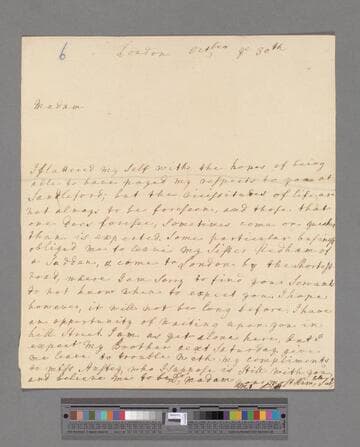 6
London Octber ye 30th
Madam
I flattered my self with the hopes of being
able to have payed my respects to you at
Sandleford; but the vicissitudes of life are
not always to be foreseen, and those that
one does foresee, sometimes come on quicker
than is expected. Some particular business
obliged me to leave my Sister Needham of
a Sudden, & come to London by the shortest
road, where I am Sorry to find your Servants
do not know when to expect you. I hope
however, it will not be long before I have
an opportunity of waiting upon you in
hill Street. I am as yet alone here, but I
expect my Brother next Saturday. give
me leave to trouble you with my compliments
to miss Anstey, who I suppose is still with you
and believe me to be Dr Madam